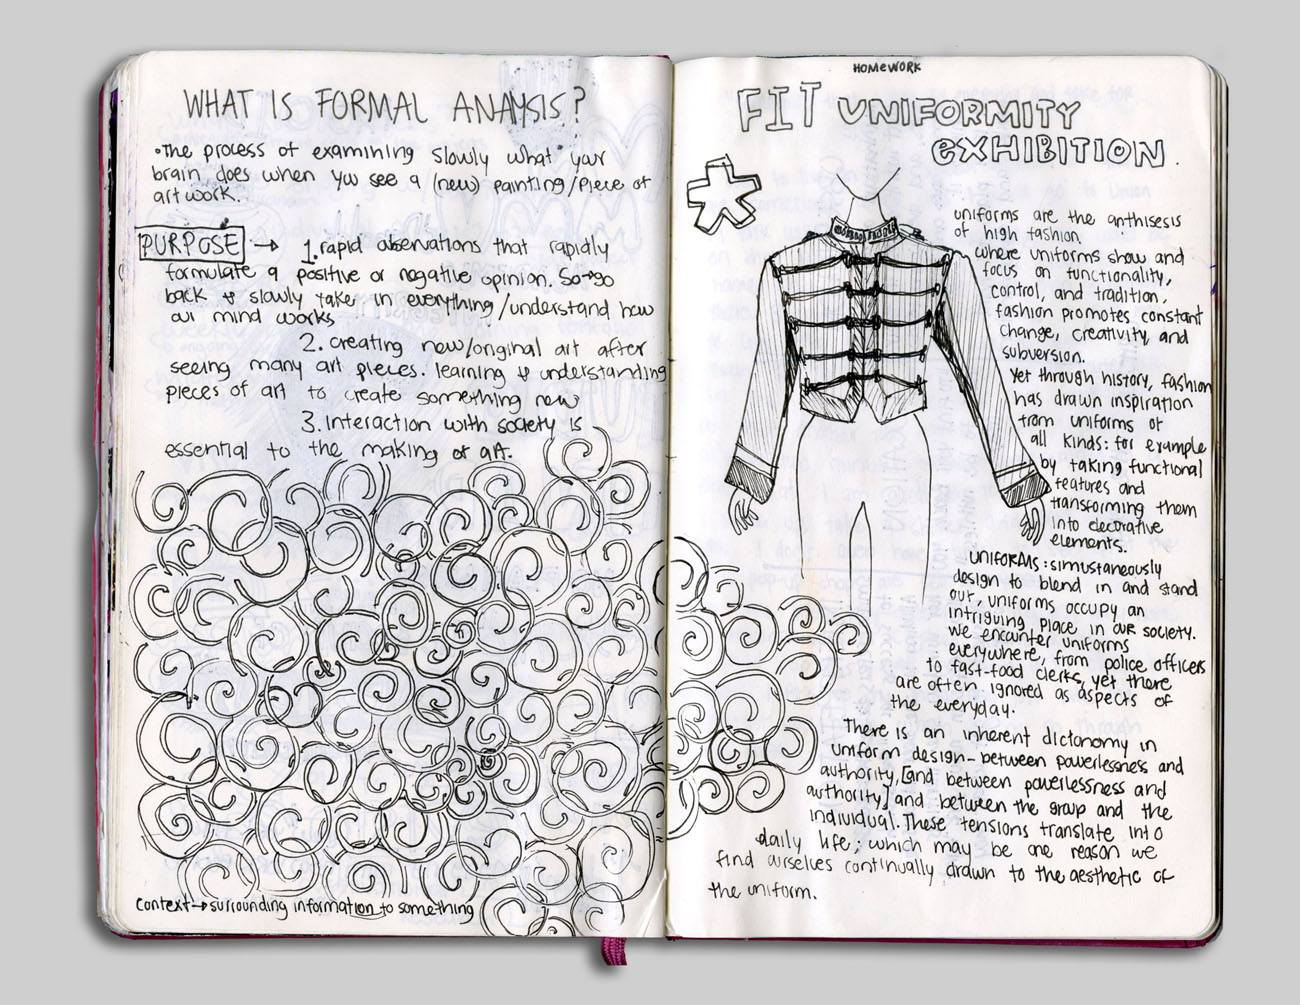 WHAT IS FORMAL ANALYSIS?
•The process of examining slowly what your
brain does when you see a (new) painting/piece of
artwork.
PURPOSE → 1. rapid observations that rapidly
formulate a positive or negative opinion. So→go
back & slowly take in everything/understand how
our mind works
2. creating new/original art after
seeing many art pieces. learning & understanding
pieces of art to create something new
3. Interaction with society is
essential to the making of art.
context→surrounding information to something
HOMEWORK
FIT UNIFORMITY
EXHIBITION.
uniforms are the anthisesis
of high fashion.
where uniforms show and
focus on functionality,
control, and tradition,
fashion promotes constant
change, creativity, and
subversion.
Yet through history, fashion
has drawn inspiration
from uniforms of
all kinds: for example
by taking functional
features and
transforming them
into decorative
elements.
UNIFORMS: simustaneously
design to blend in and stand
out, uniforms occupy an
intriguing place in our society.
we encounter uniforms
everywhere, from police officers
to fast-food clerks, yet there
are often ignored as aspects of
the everyday.
There is an inherent dictonomy in
uniform design-between powerlessness and
authority, [and between powerlessness and
authority] and between the group and the
individual. These tensions translate into
daily life; which may be one reason we
find ourselves continually drawn to the aesthetic of
the uniform.